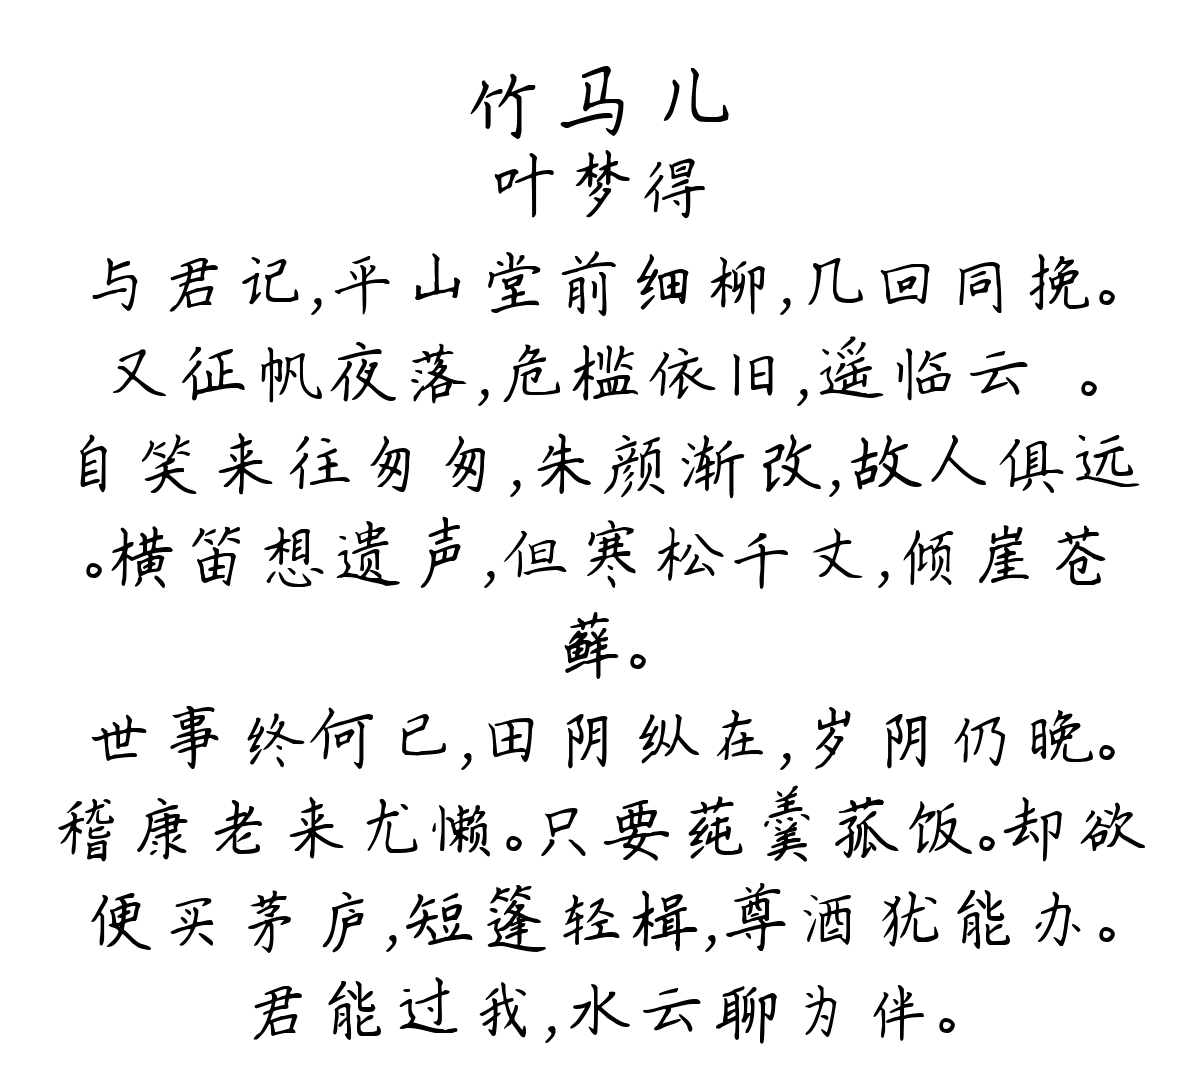 竹马儿
叶梦得
与君记,平山堂前细柳,几回同挽。
又征帆夜落,危槛依旧,遥临云 。
自笑来往匆匆,朱颜渐改,故人俱远
。横笛想遗声,但寒松千丈,倾崖苍
藓。
世事终何已,田阴纵在,岁阴仍晚。
稽康老来尤懒。只要莼羹菰饭。却欲
便买茅庐,短篷轻楫,尊酒犹能办。
君能过我,水云聊为伴。